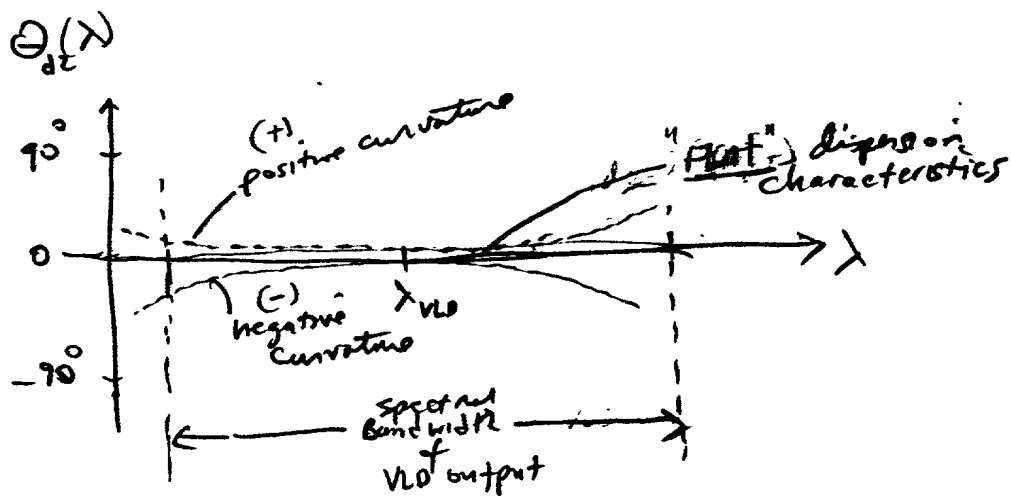 Θdt(λ)
90°
(+)
positive curvature
"Flat" dispersion
characteristics
0
λ
λVLD
(-)
negative
curvature
-90°
spectral
Bandwidth
of
VLD output